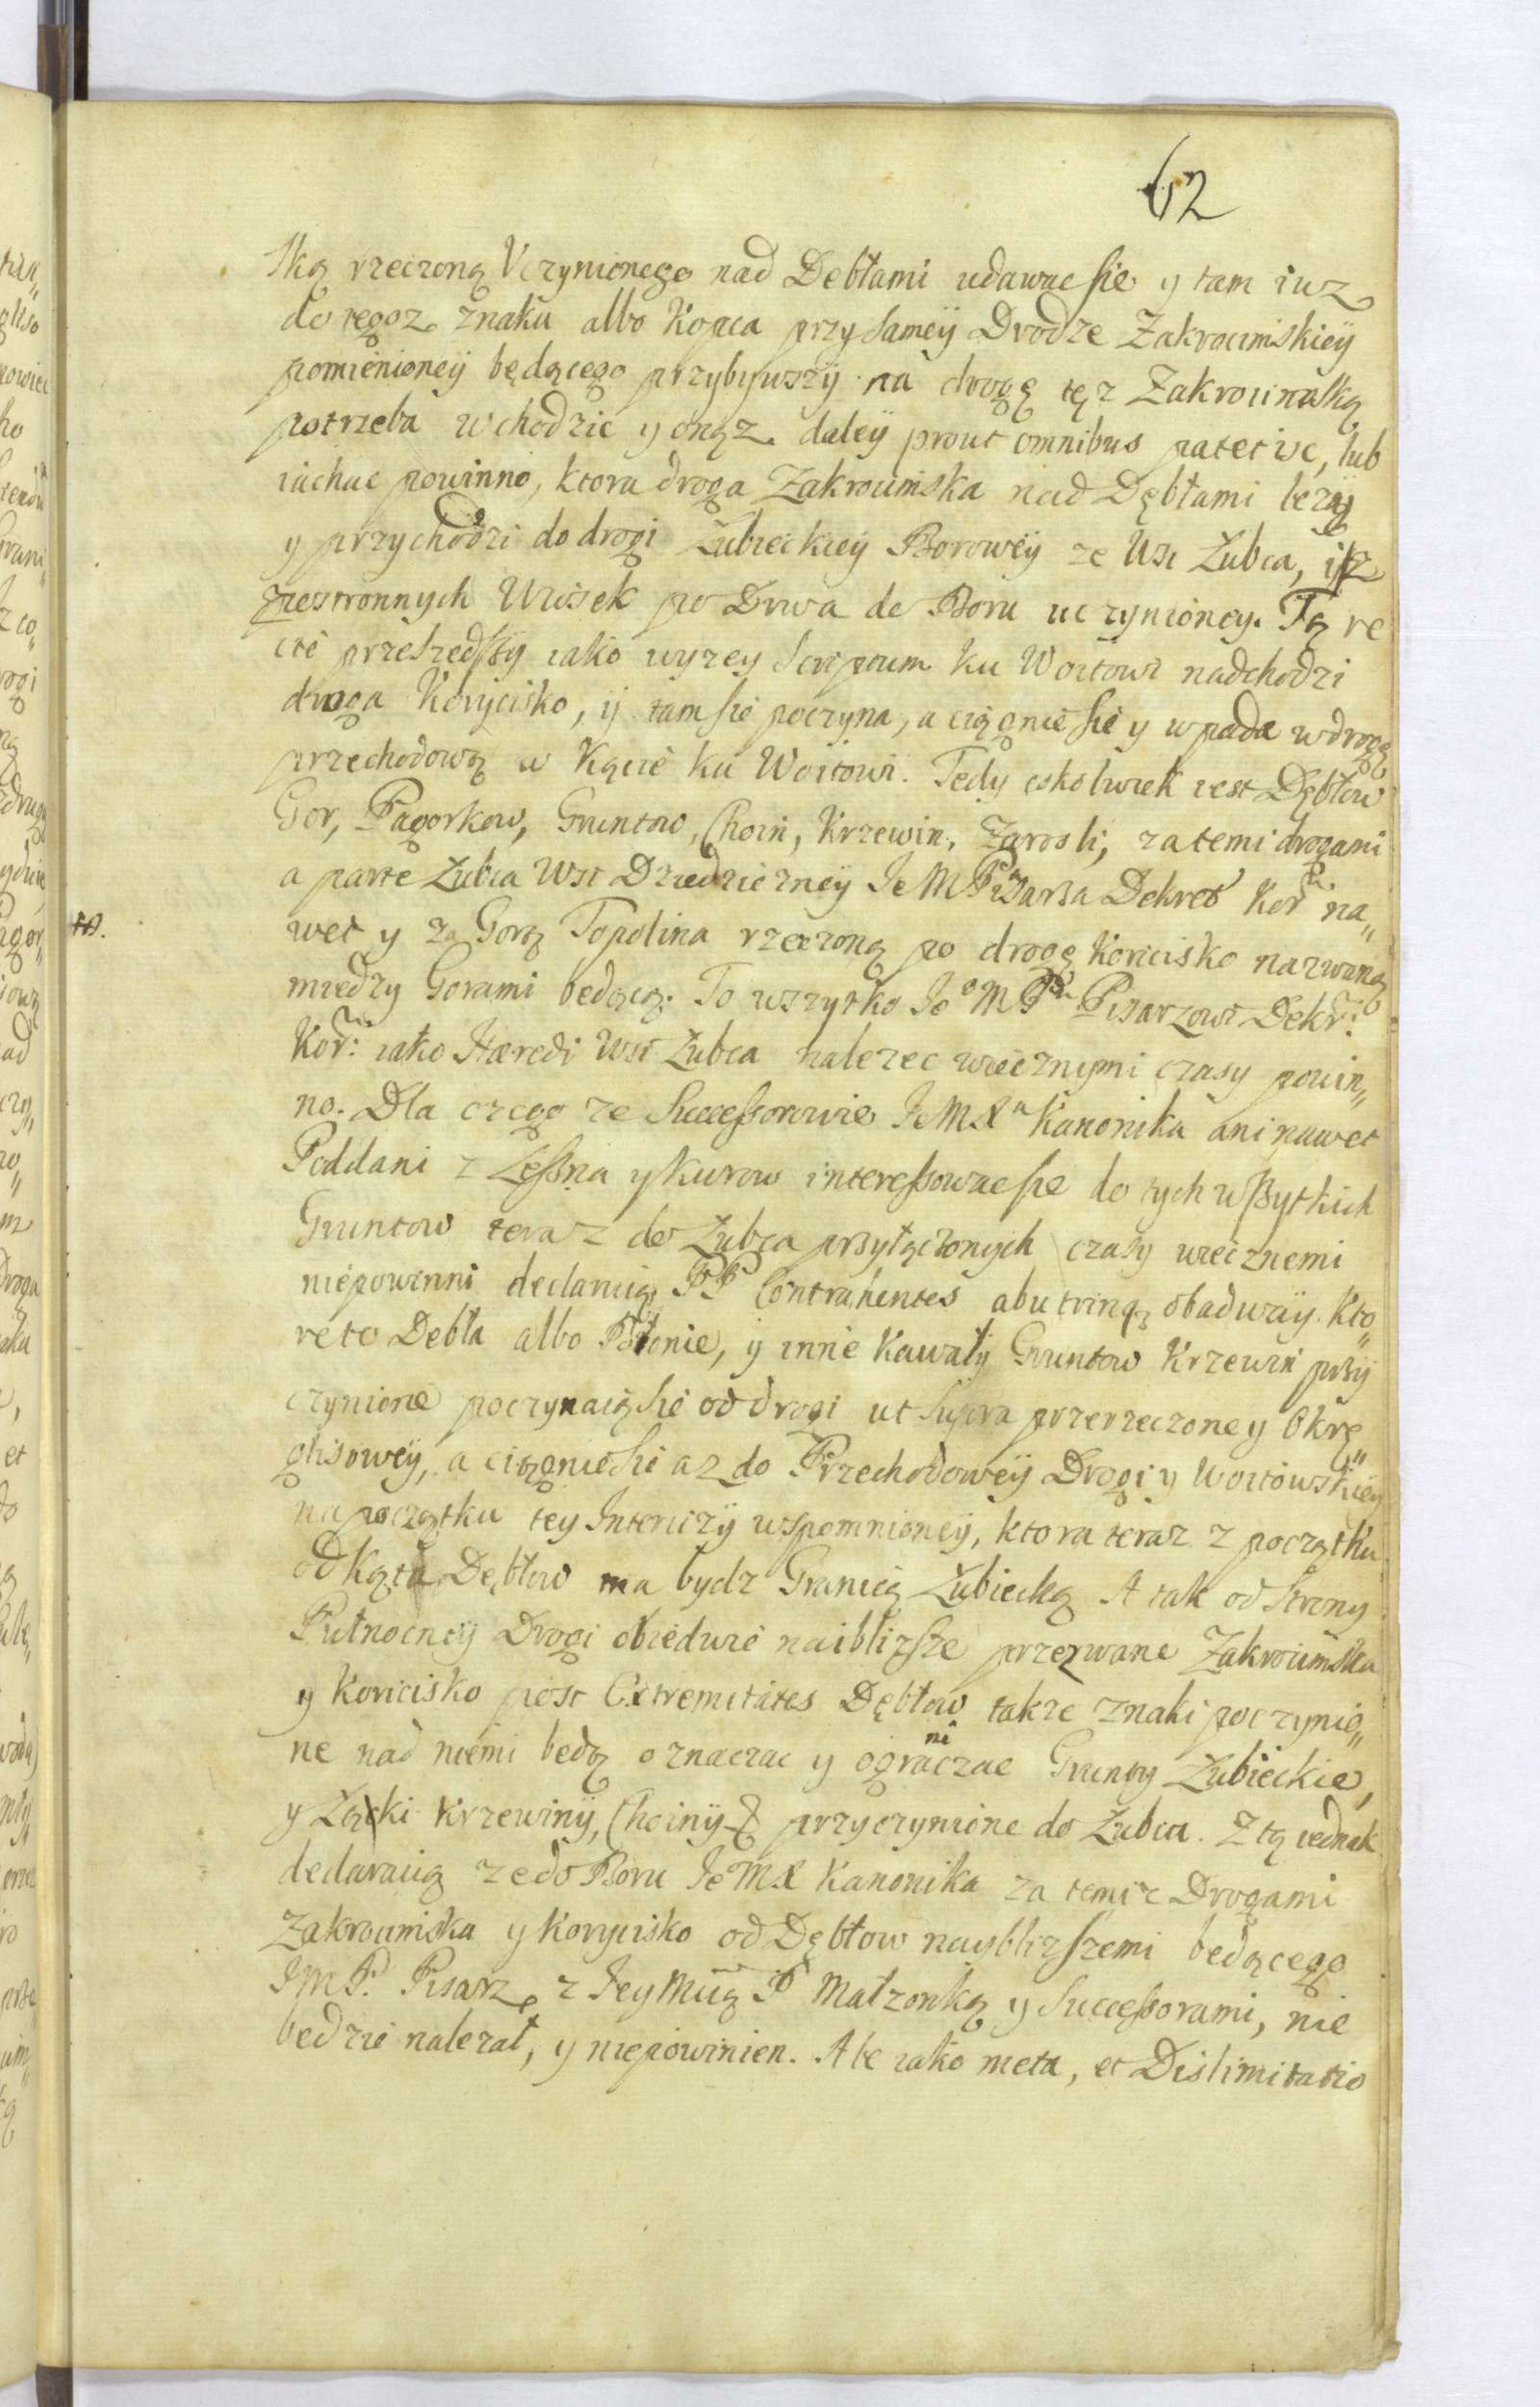 62
ską rzeczoną Uczynionego nad Debłami udawac się y tam iuz
do tegoz znaku albo Kopca przy samey Drodze Zakroczimskiey
pomienioney będącego przybywszy na drogę tęz Zakroczimską
potrzeba wchodzic y onąz daley prout omnibus patet isc, lub
iachac powinno, ktora droga Zakroczimska nad Dębłami lezy
y przychodzi do drogi Żubieckiey Borowey ze Wsi Żubca, iz
zestronnych Wiosek po Drwa do Boru uczynioney. Tą re
cte przeszedszy iako wyzey scriptum ku Woitowi nadchodzi
droga Korycisko, y tam się poczyna, a ciągnie się y wpada w drogę
przechodową w Kącie ku Woitowi. Tedy cokolwiek iest Dębłow
Gor, Pagorkow, Gruntow, Choin, Krzewin, Zarosli, za temi drogami
a parte Żubca Wsi Dziedziczney Je M Pa Pisarza Dekret Kor. na„
wet y za Gorą Topolina rzeczoną po drogę Koricisko nazwaną
między Gorami będącą. To wszytko Jeo M Pu Pisarzowi Dekr:
Kor: iako Hæredi Wsi Żubca nalezec wiecznymi czasy powin„
no. Dla czego ze Successorowie Je M Xa Kanonika ani nawet
Poddani z Lessna y Kurow interessowac się do tych wszytkich
Gruntow teraz do Żubca przyłączonych czasy wiecznemi
niepowinni declaruią PP Contrahentes ab utrinq obadway. Kto„
re to Debła albo Błonie, y inne Kawały Gruntow Krzewin przy
czynione poczynaią się od drogi ut supra przerzeczoney Okrę„
glisowey, a ciągnie się az do Przechodowey Drogi y Woitowskiey
na początku tey Intercizy wspomnioney, ktora teraz z początku
od Kąta Dębłow ma bydz Granicą Żubiecką A tak od strony
Pułnocney Drogi obiedwie naiblizsze przezwane Zakroczimska
y Koricisko post Extremitates Dębłow takze znaki poczynio„
ne nad niemi będą oznaczac y ograniczac Grunty Żubieckie,
y Łąki Krzewiny, Choiny & przyczynione do Żubca. Z tą iednak
declaracią ze do Boru Je M X Kanonika za temiz Drogami
Zakroczimska y Korycisko od Dębłow nayblizszemi będącego
J M P. Pisarz z Jey Mcią P Małzonką y Successorami, nie
bedzie nalezał, y niepowinien. Ale iako meta, et Dislimitatio